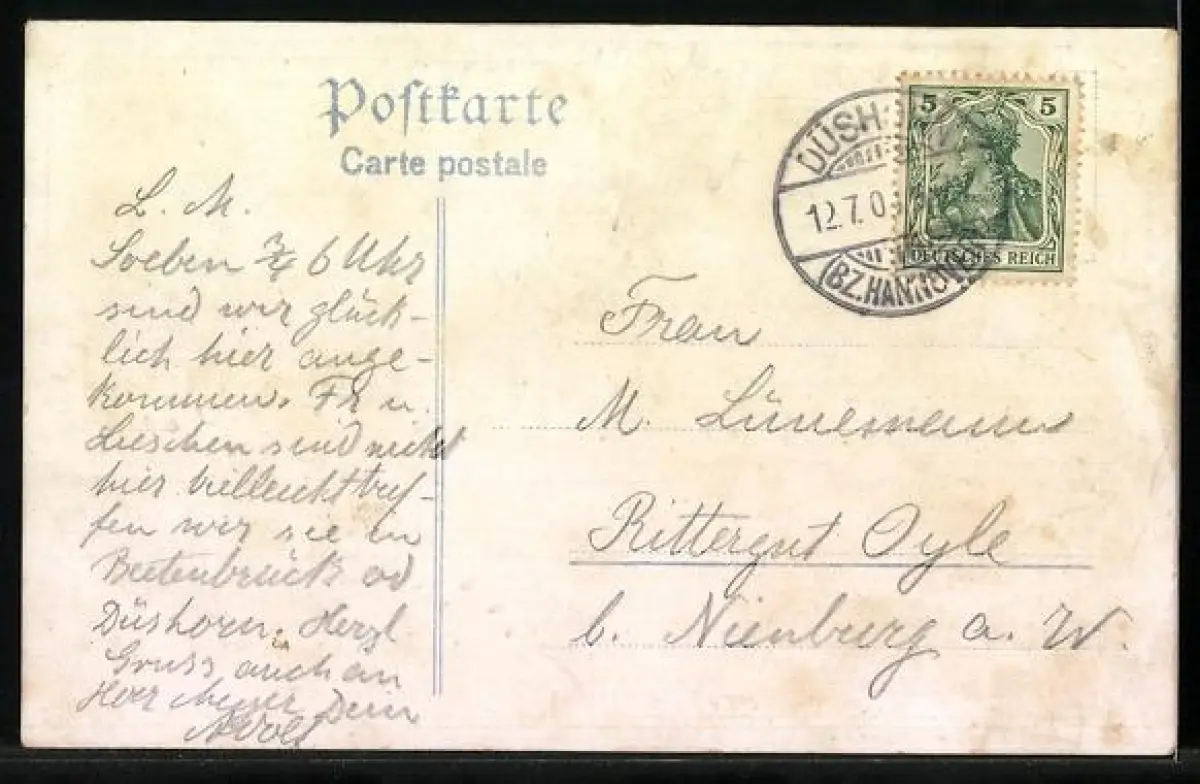 Postkarte
Carte postale
L. M.
Soeben 3/4 6 Uhr
sind wir glück-
lich hier ange-
kommen. Fr u.
Lieschen sind nicht
hier vielleicht tref-
fen wir sie in
Beetenbrück od
Düshorn. Herzl
Gruss auch an
Herr Meyer Dein
Adolf
DÜSH
12.7.0
(BZ. HANNOVER
5 5
DEUTSCHES REICH
Frau
M. Lünemann
Rittergut Oyle
b. Nienburg a. W.